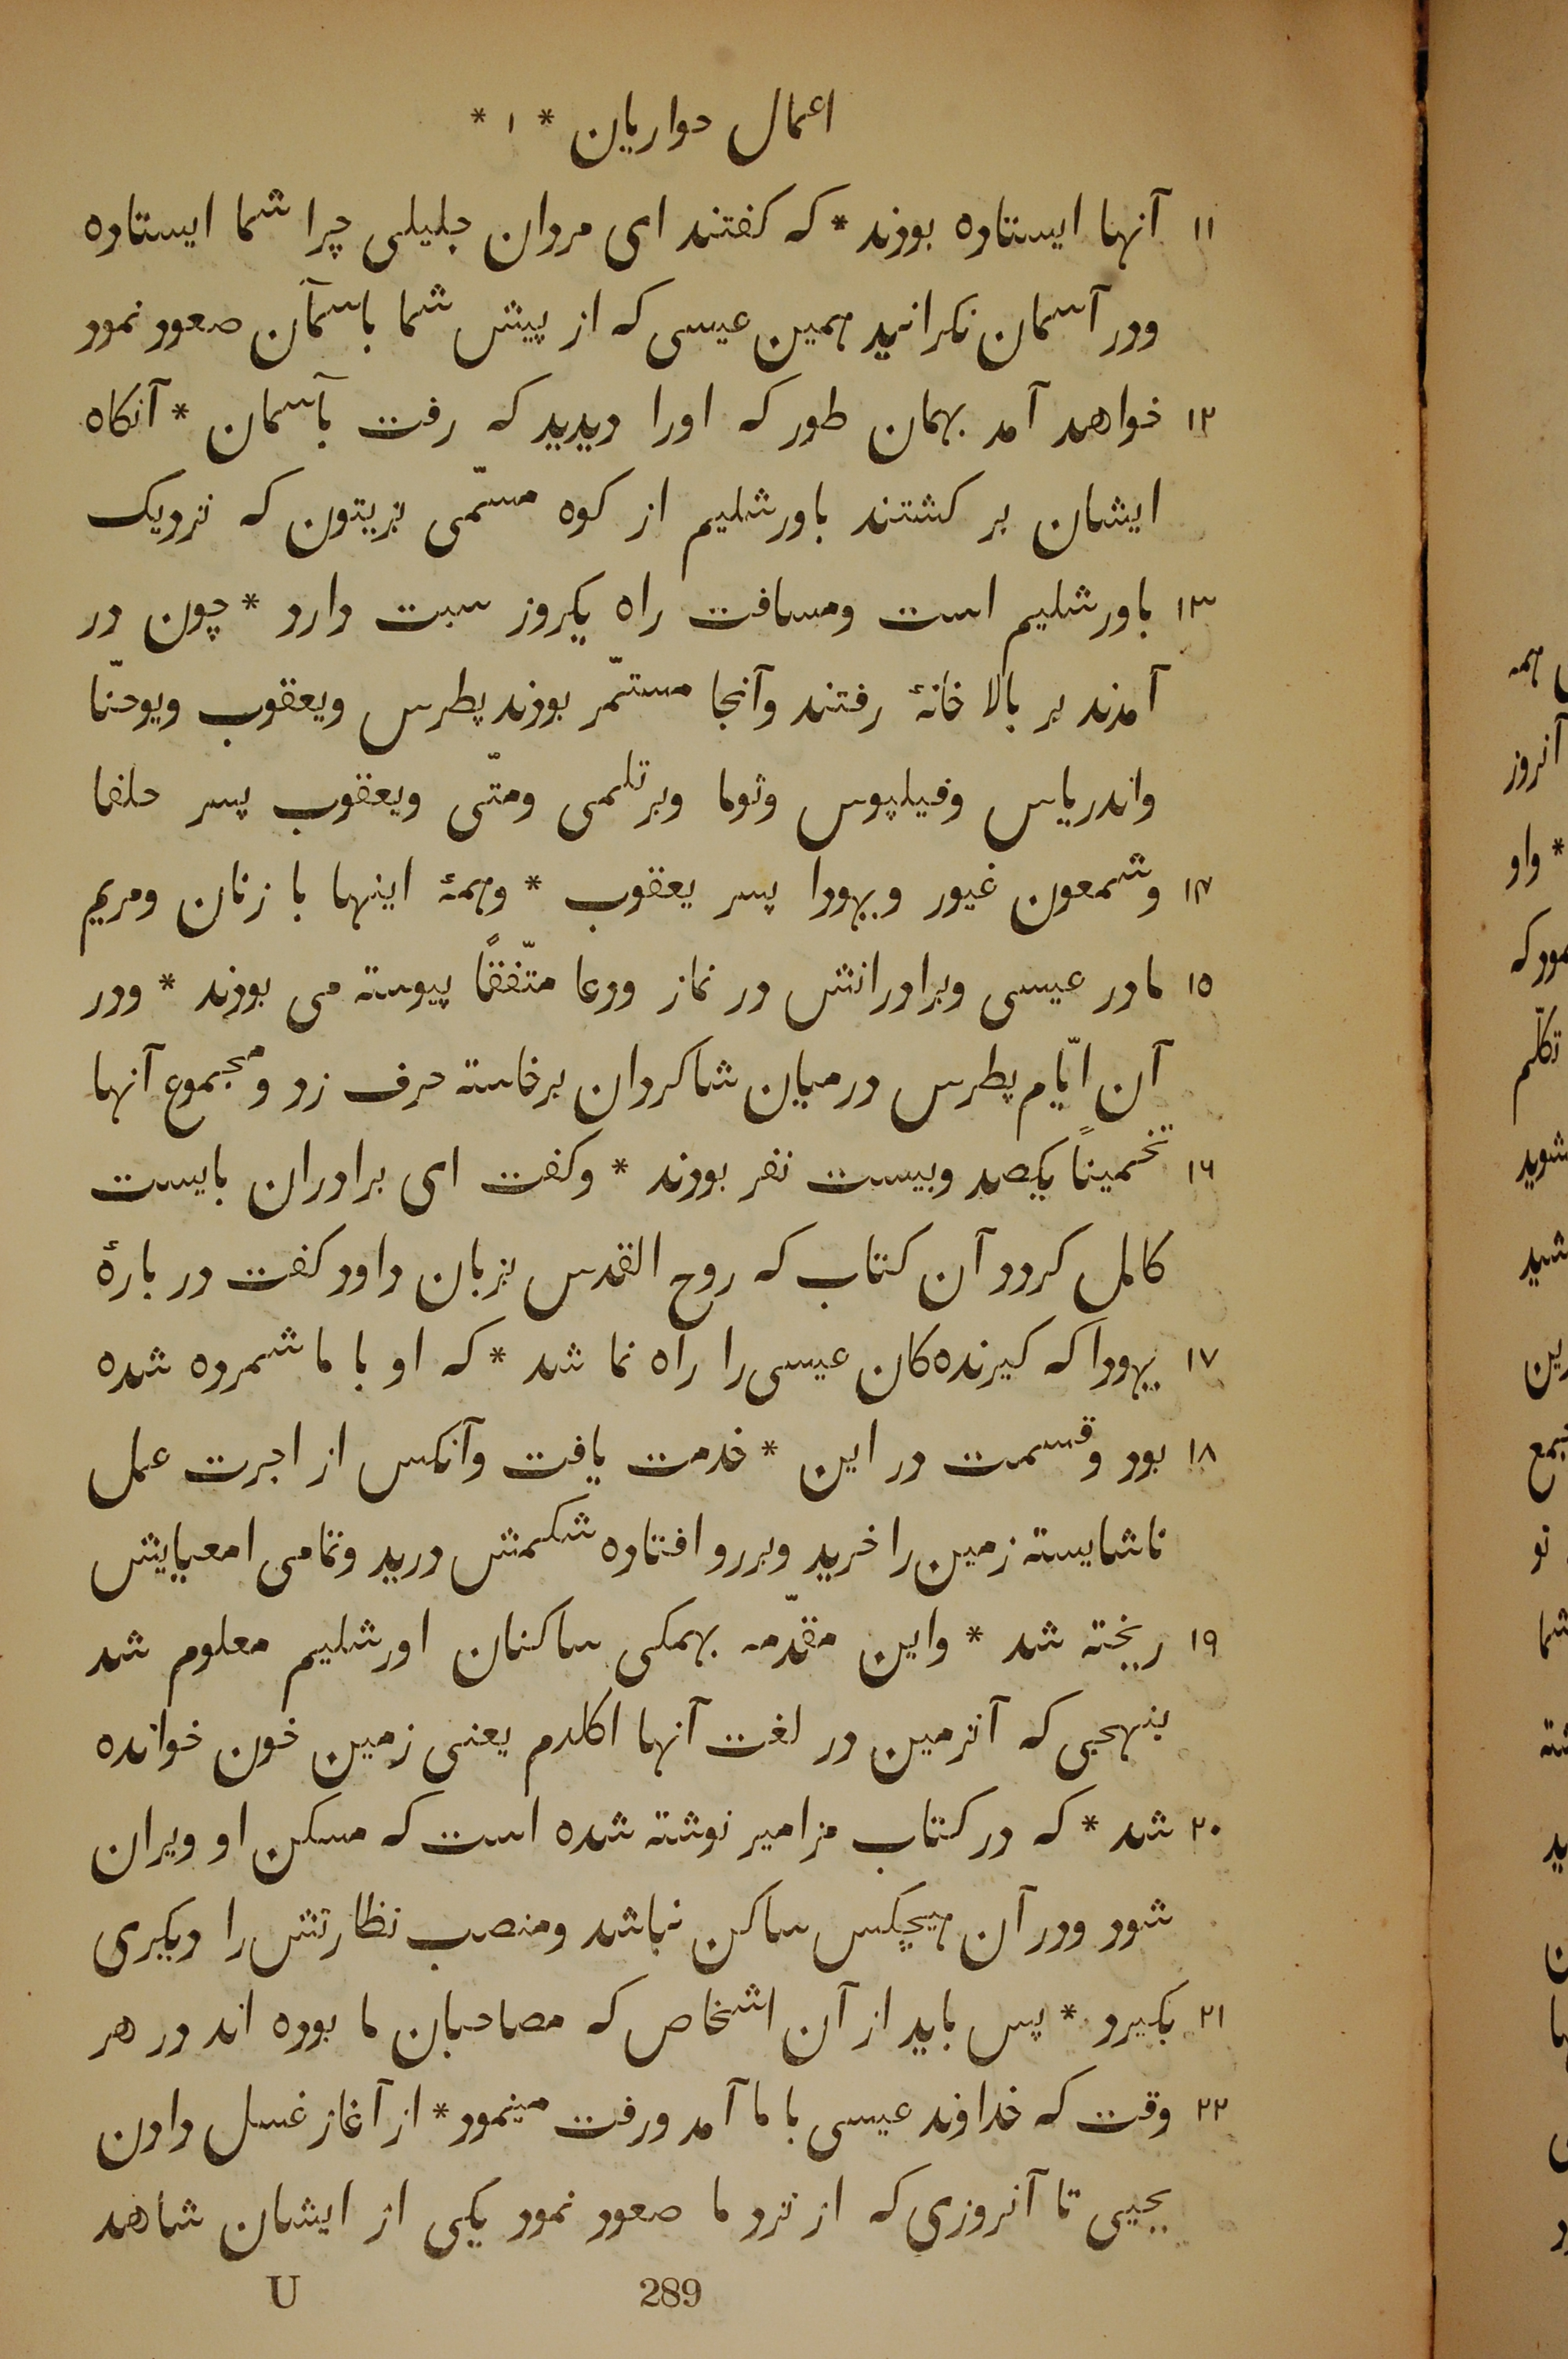 اعمال حواریان * ۱ *
۱۱ آنها ایستاده بودند * که کفتند ای مردان جلیلی چرا شما ایستاده
ودر آسمان نکرانید همین عیسی که از پیش شما باسمآن صعود نمود
۱۲ خواهد آمد بهمان طور که اورا دیدید که رفت بآسمان * آنکاه
ایشان بر کشتند باورشلیم از کوه مسمّی بزیتون که نزدیک
۱۳ باورشلیم است ومسافت راه یکروز سبت دارد * چون در
آمدند بر بالا خانهٔ رفتند وآنجا مستمّر بودند پطرس ویعقوب ویوحنّا
واندریاس وفیلپوس وثوما وبرتلمی ومتّی ویعقوب پسر حلفا
۱۴ وشمعون غیور ویهودا پسر یعقوب * وهمهٔ اینها با زنان ومریم
۱۵ مادر عیسی وبرادرانش در نماز ودعا متّفقًا پیوسته می بودند * ودر
آن ایّام پطرس درمیان شاکردان برخاسته حرف زد ومجموع آنها
۱۶ تخمینًا یکصد وبیست نفر بودند * وکفت ای برادران بایست
کامل کردد آن کتاب که روح القدس بزبان داود کفت در بارهٔ
۱۷ یهودا که کیرنده‌کان عیسی را راه نما شد * که او با ما شمرده شده
۱۸ بود وقسمت در این * خدمت یافت وآنکس از اجرت عمل
ناشایسته زمین را خرید وبررو افتاده شکمش درید وتمامی امعایش
۱۹ ریخته شد * واین مقدّمه بهمکی ساکنان اورشلیم معلوم شد
بنهجی که آنزمین در لغت آنها اکلدم یعنی زمین خون خوانده
۲۰ شد * که در کتاب مزامیر نوشته شده است که مسکن او ویران
شود ودر آن هیچکس ساکن نباشد ومنصب نظارتش را دیکری
۲۱ بکیرد * پس باید از آن اشخاص که مصاحبان ما بوده اند در هر
۲۲ وقت که خداوند عیسی با ما آمد ورفت مینمود * از آغاز غسل دادن
یحیی تا آنروزی که از نزد ما صعود نمود یکی از ایشان شاهد
289 U